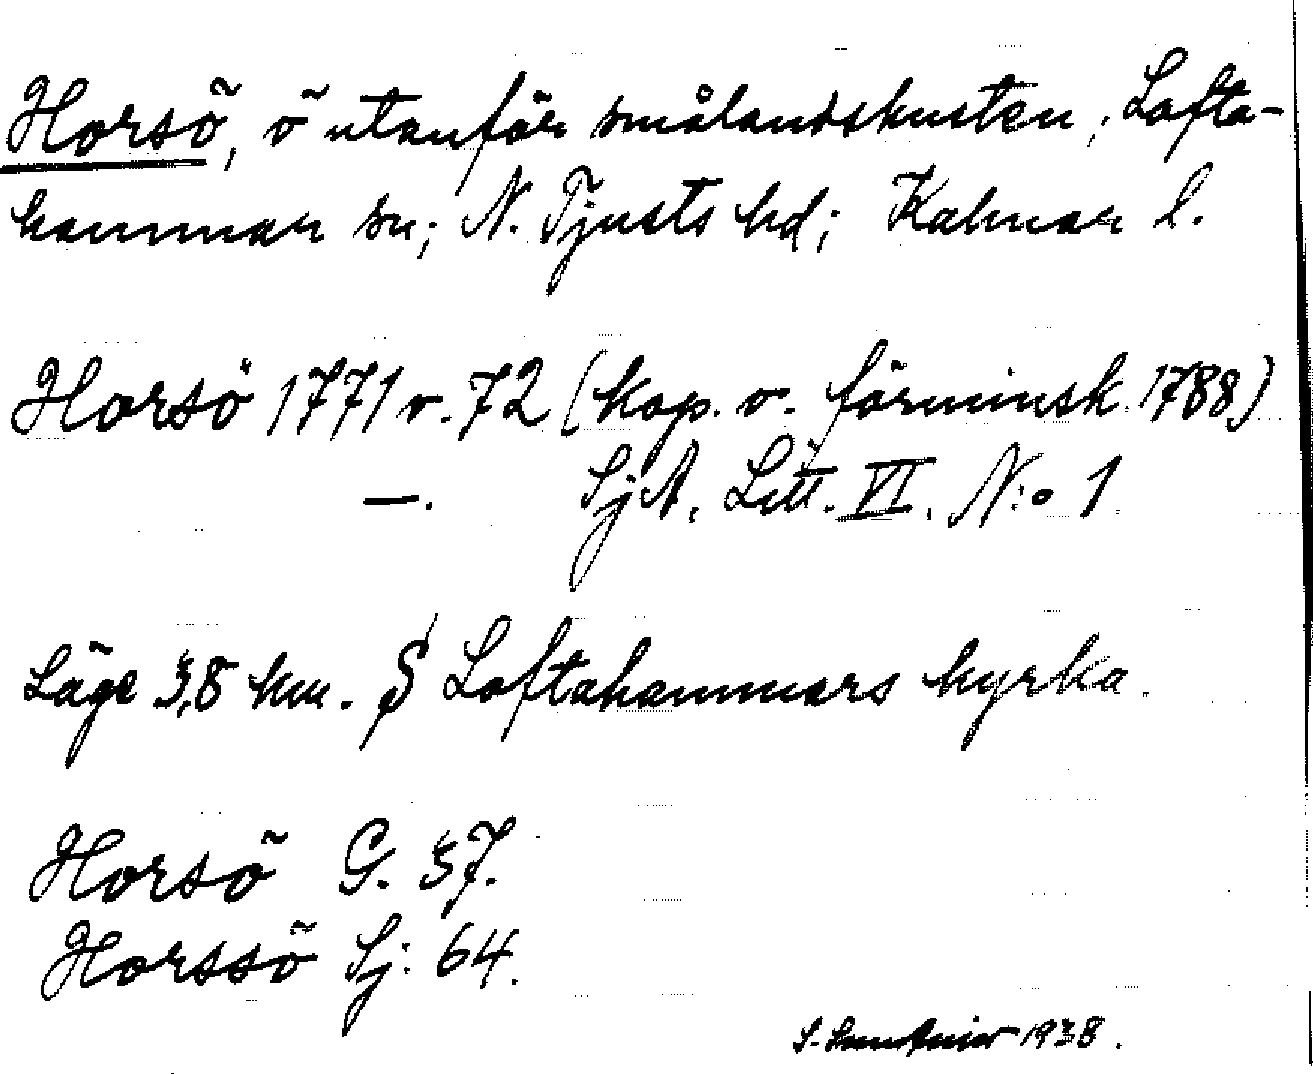 Horsö, ö utanför smålandskusten; Lofta-
hammar sn; N. Tjusts hd; Kalmar l.
Horsö 1771 v. 72 (kop. o. förminsk. 1788)
—. SjA, Litt. VI. N:o 1
Läge 3,8 km. S Loftahammars kyrka.
Horsö G. 37.
Horssö Sj: 64.
S. 1938.